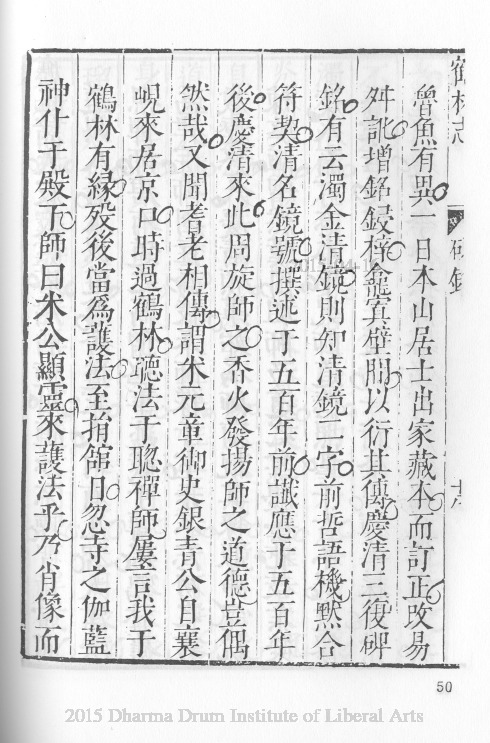 鶴林寺
魯魚有異一日本山居士出家藏本而訂正攺易
舛訛增銘鋟梓龕寘壁間以衍其傳慶清三復碑
銘有云濁金清鏡則知清鏡二字前哲語機黙合
符契清名鏡號撰述于五百年前讖應于五百年
後慶清來此周旋師之香火發揚師之道德豈偶
然哉又聞耆老相傳謂米元章御史銀青公自襄
峴來居京口時過鶴林聽法于聦禪師屢言我于
鶴林有緣殁後當爲護法至捐館日忽寺之伽藍
神仆于殿下師曰米公顯靈來護法乎乃肖像而
50
2015 Dharma Drum Institute of Liberal Arts